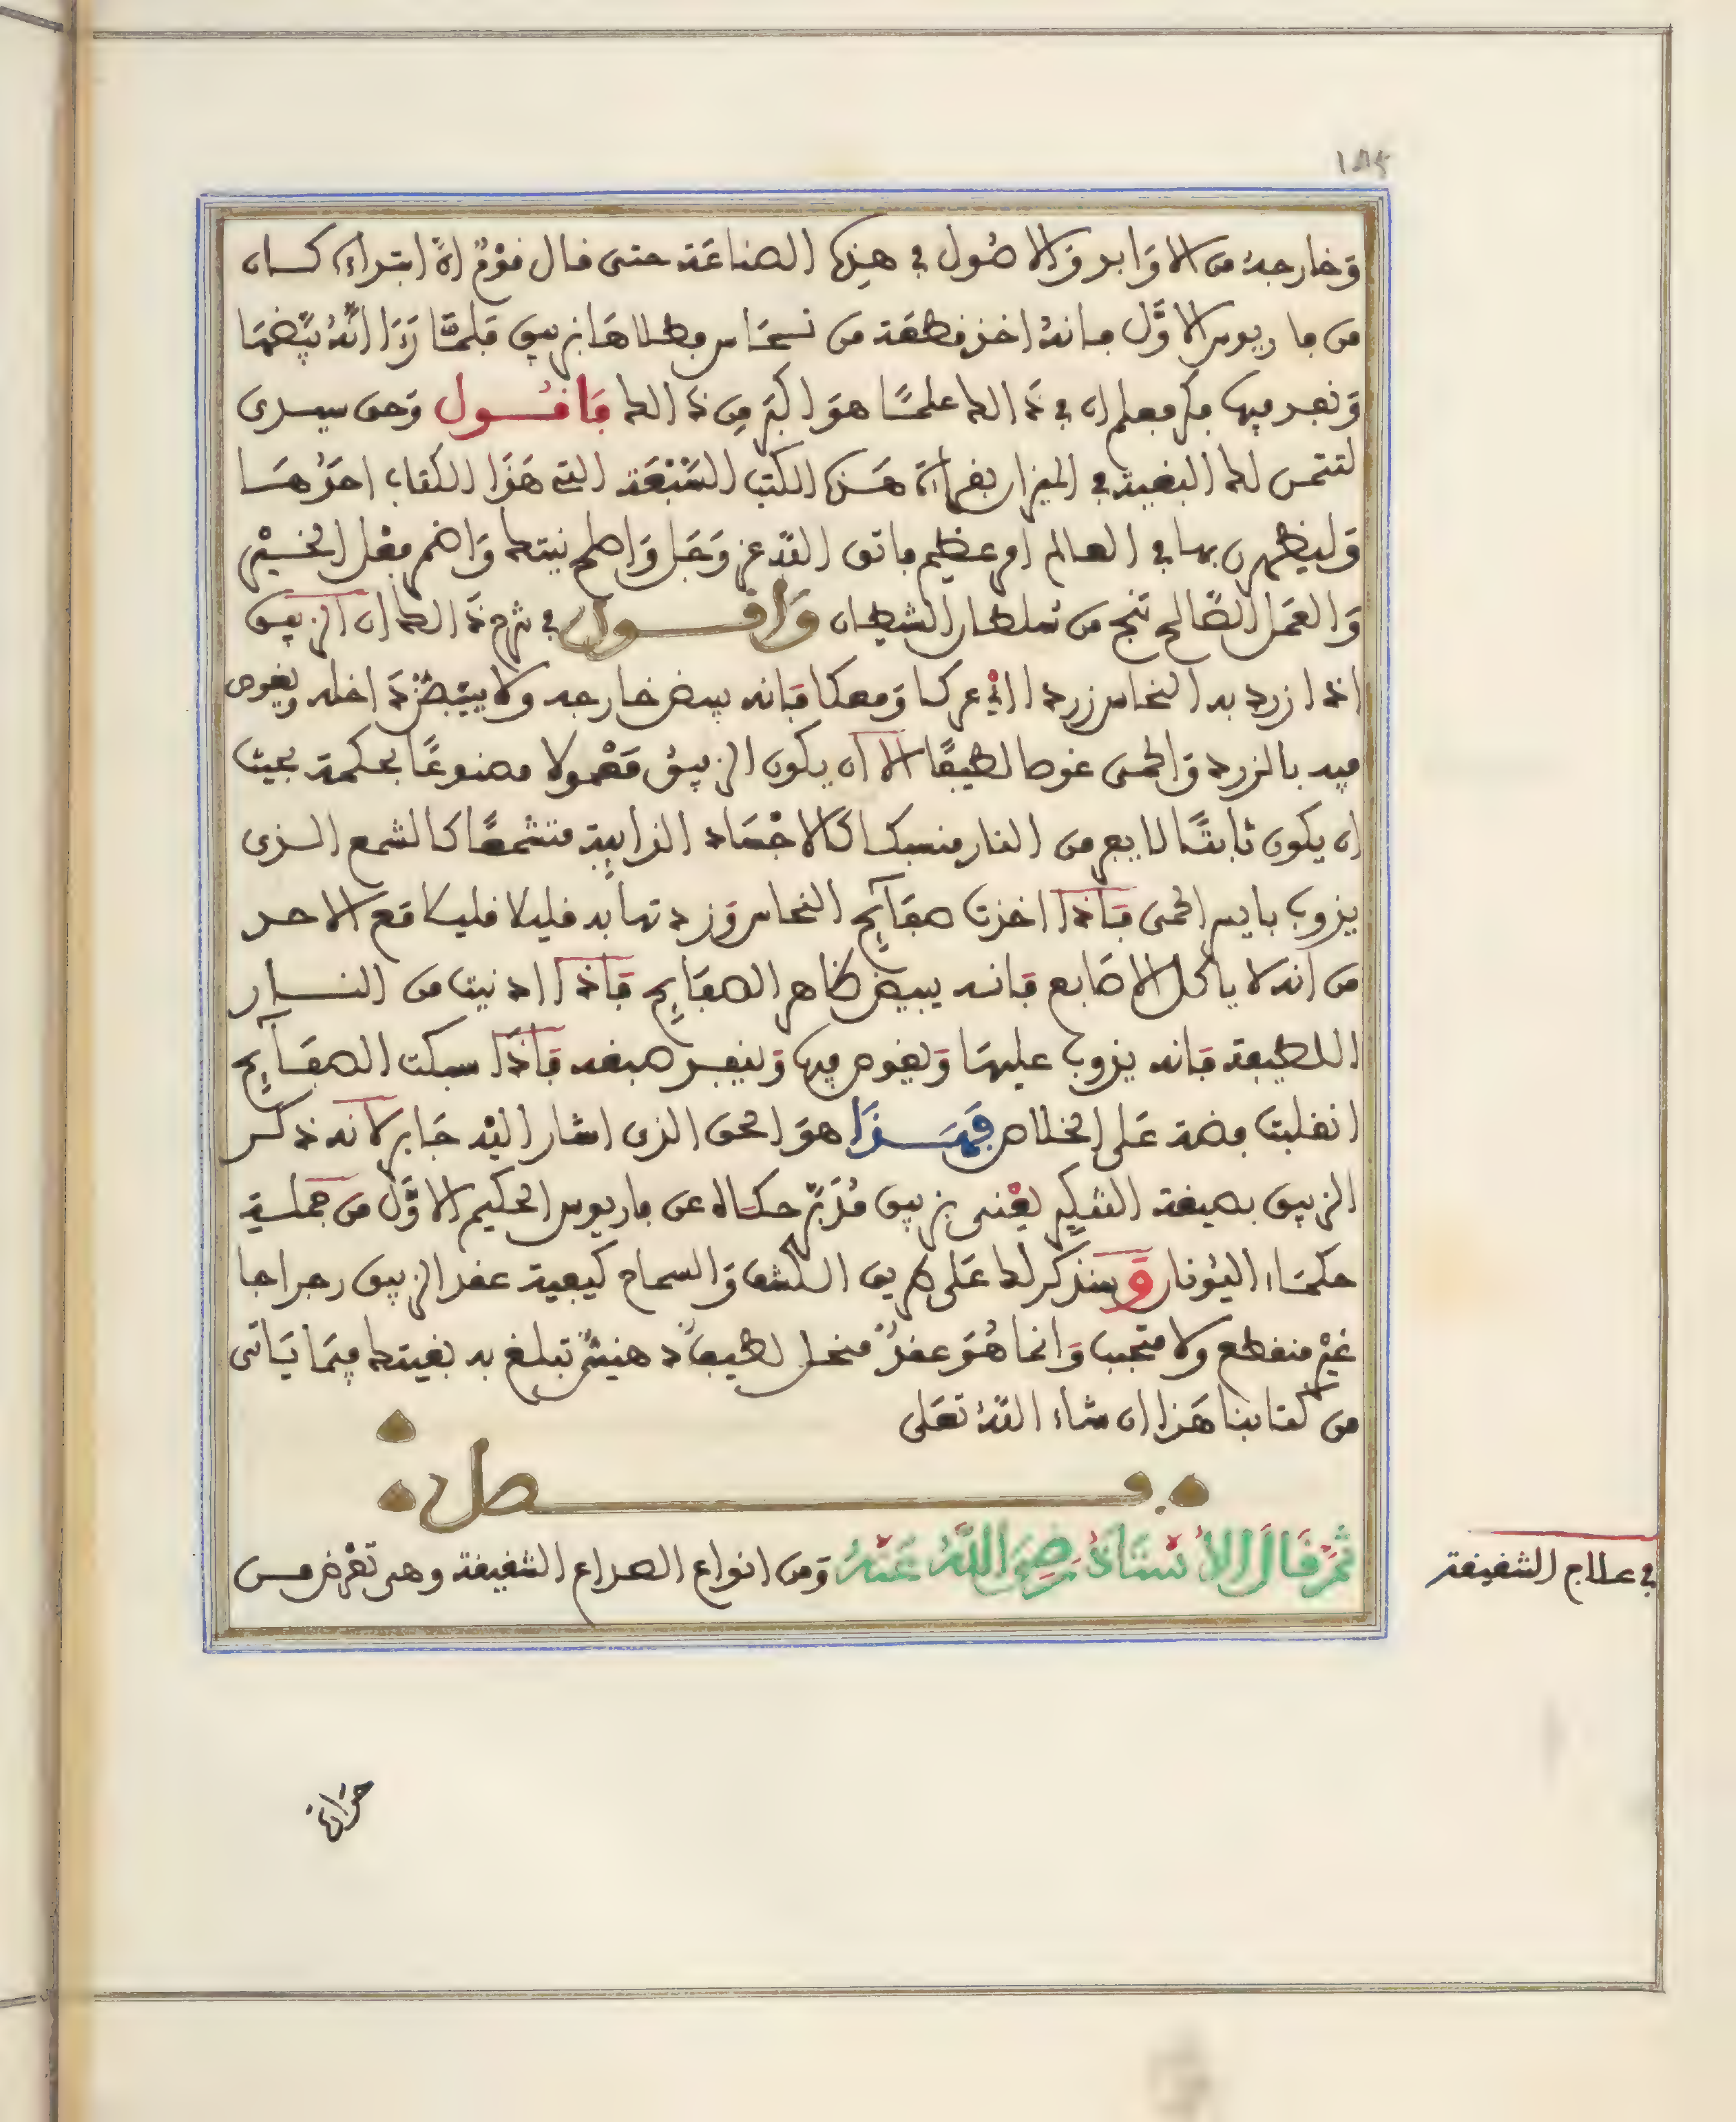 ١٨٤
وخارجة من الاوابد والاصول في هذه الصناعة حتى قال قوم ان ابتداءه كان
من ماريوس الاول فانه اخذ قطعة من نحاس وطلاها بزيبق فلما رءا انه بيضها
ونفد فيها فكر فعلم ان في ذالك علما هو اكبر من ذالك فاقول وحق سيدى
لتتمن لك البغية في الميزان بقراءة هذه الكتب السبعة التي هذا الكتاب احدها
وليظهرن بها في العالم امر عظيم فاتق الله عز وجل واصلح نيتك واضمر فعل الخير
والعمل الصالح تنج من تسلطن الشيطان واقول في شرح ذالك ان الزيبق
اذا ازرد به النحاس زردا اي عركا ومعكا فانه يبيض خارجه ولا يبيض داخله ويغوص
فيه بالزرد والحمى غوصا لطيفا الا ان يكون الزيبق معمولا مصنوعا بحكمة بحيث
ان يكون ثابتا لا يفر من النار منسبكا كالاجساد الذايبة متشمعا كالشمع الذى
يذوب بايسر الحمى فاذا اخذت صفآيح النحاس وزردتها به قليلا قليلا مع الاحد
من انه لا ياكل الاصابع فانه يبيض ظاهر الصفايح فاذا ادنيت من النار
اللطيفة فانه يذوب عليها ويغوص فيها وينفد صبغه فاذا سبكت الصفآيح
انقلبت فضة على الخلاص فهذا هو الحق الذى اشار اليه جابر لانه ذكر
الزيبق بصيغة التنكير يعنى بزيبق مدبر حكاه عن ماريوس الحكيم الاول من جملة
حكماء اليونان وسنذكر لك على طريق الكشف والسماح كيفية عقد الزيبق رجراجا
غير منقطع ولا متحبب وانما هو عقد منحل لطيف دهينى تبلغ به بغيتك فيما ياتى
من كتابنا هذا ان شاء الله تعلى
فصل
ثم قال الاستاذ رضي الله عنه ومن انواع الصداع الشقيقة وهى تعرض من
في علاج الشقيقة
حرارة